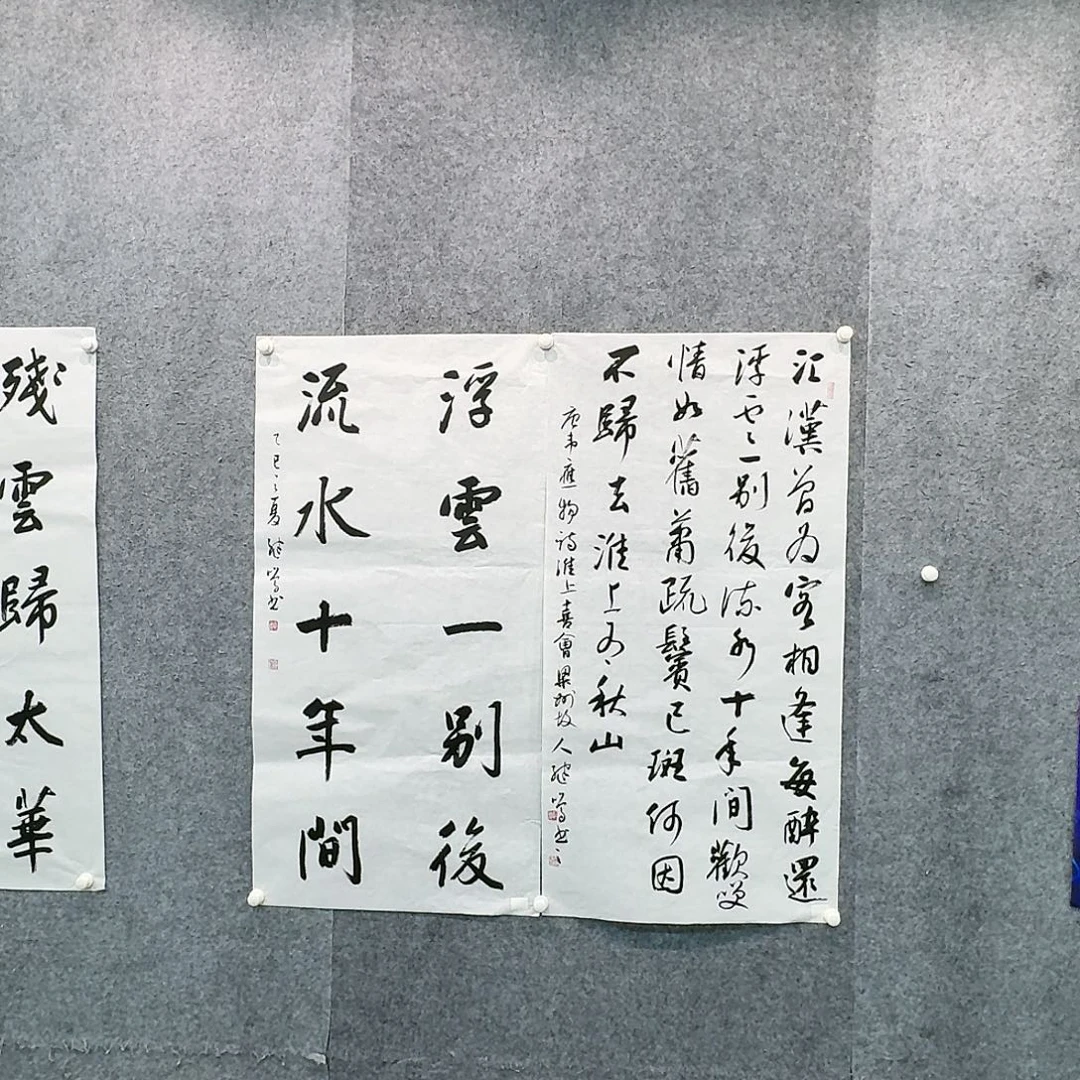 江漢曾為客相逢每醉還
浮雲一別後流水十年間歡笑
情如舊蕭疏鬢已斑何因
不歸去淮上有秋山
唐韋應物詩淮上喜會梁州故人
浮雲一別後
流水十年間
乙巳之夏
殘雲歸太華